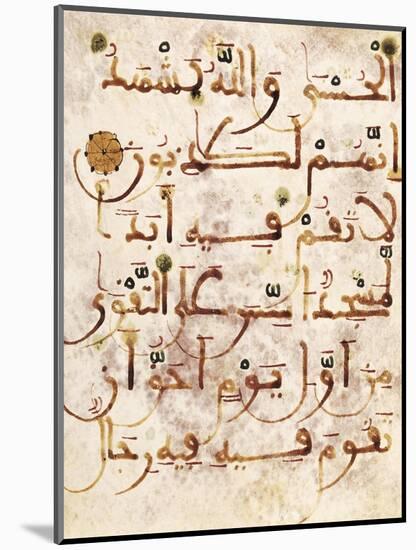 الحسنى والله يشهد
انهم لكذبون
لا تقم فيه أبدا
لمسجد أسس على التقوى
من أول يوم أحق أن
تقوم فيه فيه رجال